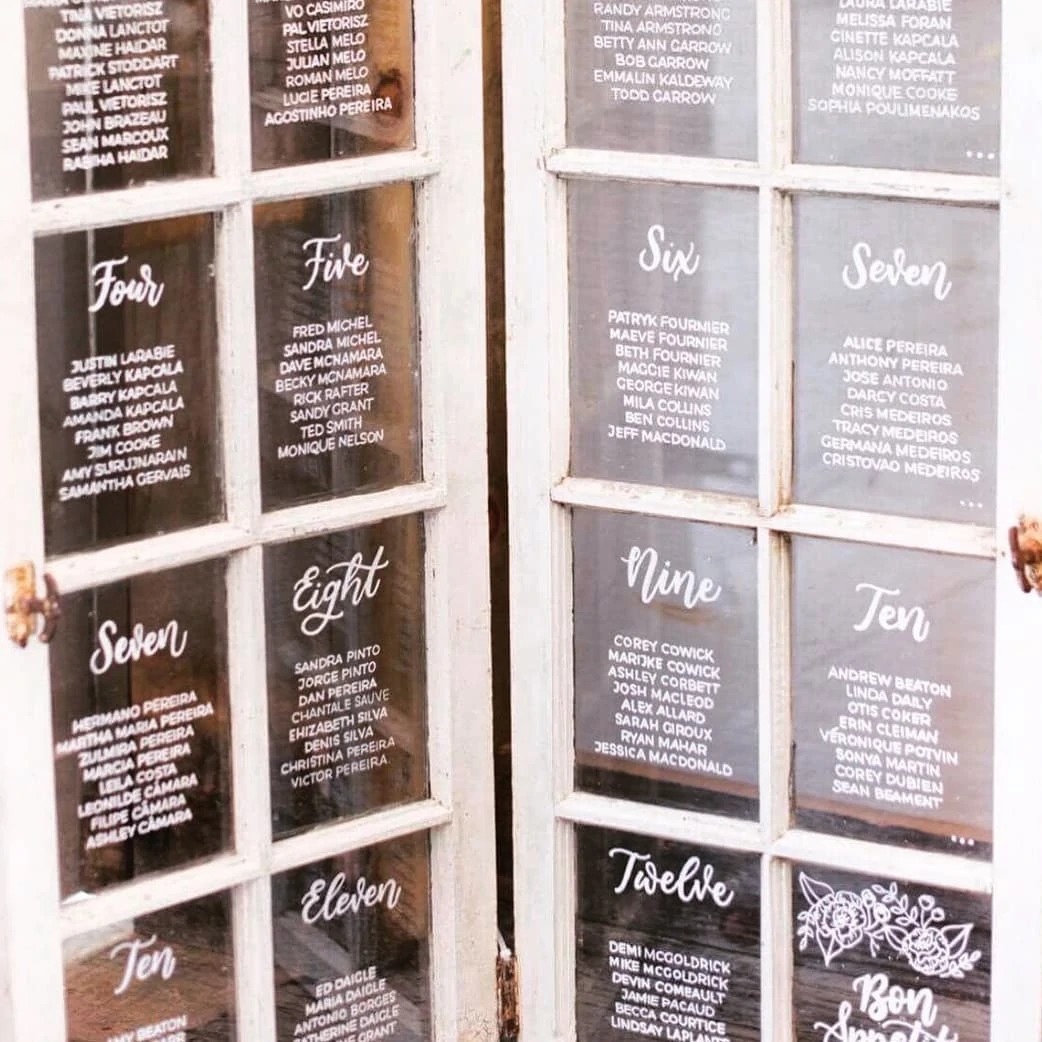 TINA VIETORISZ
DONNA LANCTOT
MAXINE HAIDAR
PATRICK STODDART
MIKE LANCTOT
PAUL VIETORISZ
JOHN BRAZEAU
SEAN MARCOUX
RABIHA HAIDAR
VO CASIMIRO
PAL VIETORISZ
STELLA MELO
JULIAN MELO
ROMAN MELO
LUCIE PEREIRA
AGOSTINHO PEREIRA
RANDY ARMSTRONG
TINA ARMSTRONG
BETTY ANN GARROW
BOB GARROW
EMMALIN KALDEWAY
TODD GARROW
LAURA LARABIE
MELISSA FORAN
GINETTE KAPCALA
ALISON KAPCALA
NANCY MOFFATT
MONIQUE COOKE
SOPHIA POULIMENAKOS
...
Four
JUSTIN LARABIE
BEVERLY KAPCALA
BARRY KAPCALA
AMANDA KAPCALA
FRANK BROWN
JIM COOKE
AMY SURUJNARAIN
SAMANTHA GERVAIS
Five
FRED MICHEL
SANDRA MICHEL
DAVE MCNAMARA
BECKY MCNAMARA
RICK RAFTER
SANDY GRANT
TED SMITH
MONIQUE NELSON
Six
PATRYK FOURNIER
MAEVE FOURNIER
BETH FOURNIER
MAGGIE KIWAN
GEORGE KIWAN
MILA COLLINS
BEN COLLINS
JEFF MACDONALD
Seven
ALICE PEREIRA
ANTHONY PEREIRA
JOSE ANTONIO
DARCY COSTA
CRIS MEDEIROS
TRACY MEDEIROS
GERMANA MEDEIROS
CRISTOVAO MEDEIROS
...
Seven
HERMANO PEREIRA
MARTHA MARIA PEREIRA
ZULMIRA PEREIRA
MARCIA PEREIRA
LEILA COSTA
LEONILDE CÂMARA
FILIPE CÂMARA
ASHLEY CÂMARA
Eight
SANDRA PINTO
JORGE PINTO
DAN PEREIRA
CHANTALE SAUVE
EHIZABETH SILVA
DENIS SILVA
CHRISTINA PEREIRA
VICTOR PEREIRA
Nine
COREY COWICK
MARIJKE COWICK
ASHLEY CORBETT
JOSH MACLEOD
ALEX ALLARD
SARAH GIROUX
RYAN MAHAR
JESSICA MACDONALD
Ten
ANDREW BEATON
LINDA DAILY
OTIS COKER
ERIN CLEIMAN
VÉRONIQUE POTVIN
SONYA MARTIN
COREY DUBIEN
SEAN BEAMENT
...
Ten
BEATON
Eleven
ED DAIGLE
MARIA DAIGLE
ANTONIO BORGES
DAIGLE
GRANT
Twelve
DEMI MCGOLDRICK
MIKE MCGOLDRICK
DEVIN COMEAULT
JAMIE PACAUD
BECCA COURTICE
LINDSAY LAPLANTE
Bon
Appetit